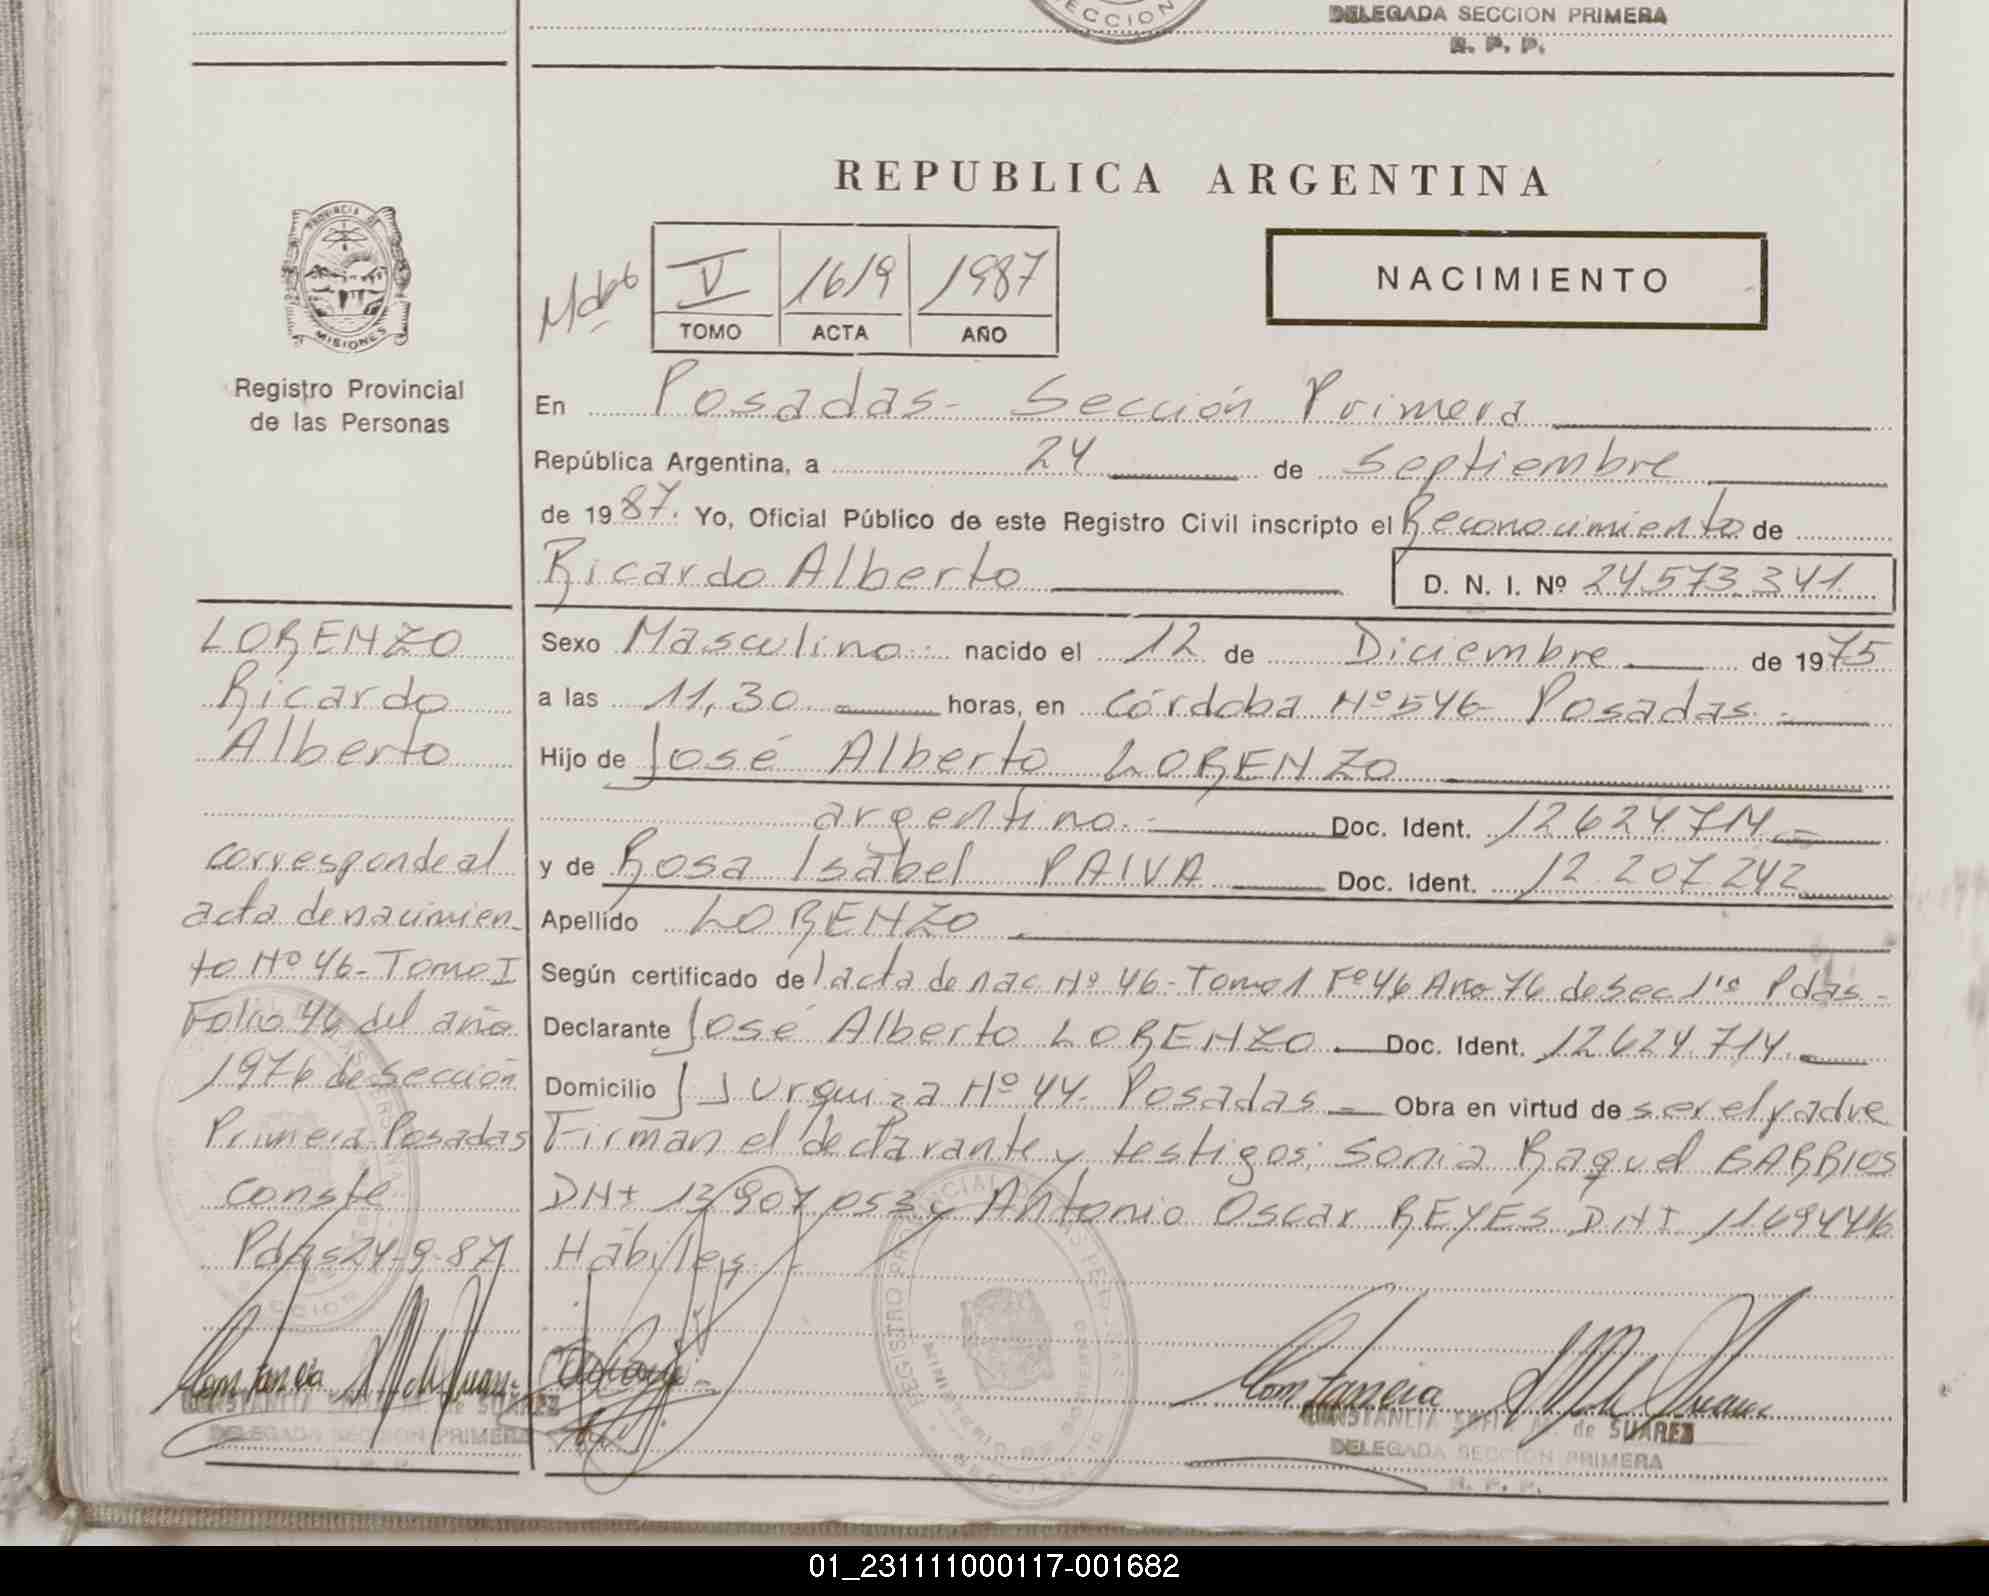 SECCION
DELEGADA SECCION PRIMERA
R. P. P.
REPUBLICA ARGENTINA
PROVINCIA DE
MISIONES
Registro Provincial
de las Personas
V 1619 1987
TOMO ACTA AÑO
NACIMIENTO
En Posadas- Sección Primera
República Argentina, a 24 de Septiembre
de 1987. Yo, Oficial Público de este Registro Civil inscripto el Reconocimiento de
Ricardo Alberto D. N. I. Nº 24.573.341.
Sexo Masculino.- nacido el 12 de Diciembre de 1975
a las 11,30 horas, en Córdoba Nº 546- Posadas.-
Hijo de José Alberto LORENZO
argentino.- Doc. Ident.
y de Rosa Isabel PAIVA Doc. Ident. 12.207.242
Apellido LORENZO
Según certificado de acta de nac Nº 46- Tomo 1 Fº 46 Año 76 de sec 1ra Pdas-
Declarante José Alberto LORENZO Doc. Ident. 12.624.714.
Domicilio J J Urquiza Nº 44- Posadas Obra en virtud de ser el padre
Firman el declarante y testigos: Sonia Raquel BARRIOS
DNI 13.907.053 y Antonio Oscar REYES DNI
Hábiles
LORENZO
Ricardo
Alberto
corresponde al
acta de nacimien-
to Nº 46- Tomo I
Folio 46 del año
1976 de Sección
Primera Posadas
conste
Pdas 24-9-87
Constancia
CONSTANCIA de SUAREZ
DELEGADA SECCION PRIMERA
R. P. P.
Constancia
CONSTANCIA de SUAREZ
DELEGADA SECCION PRIMERA
R. P. P.
01_231111000117-001682